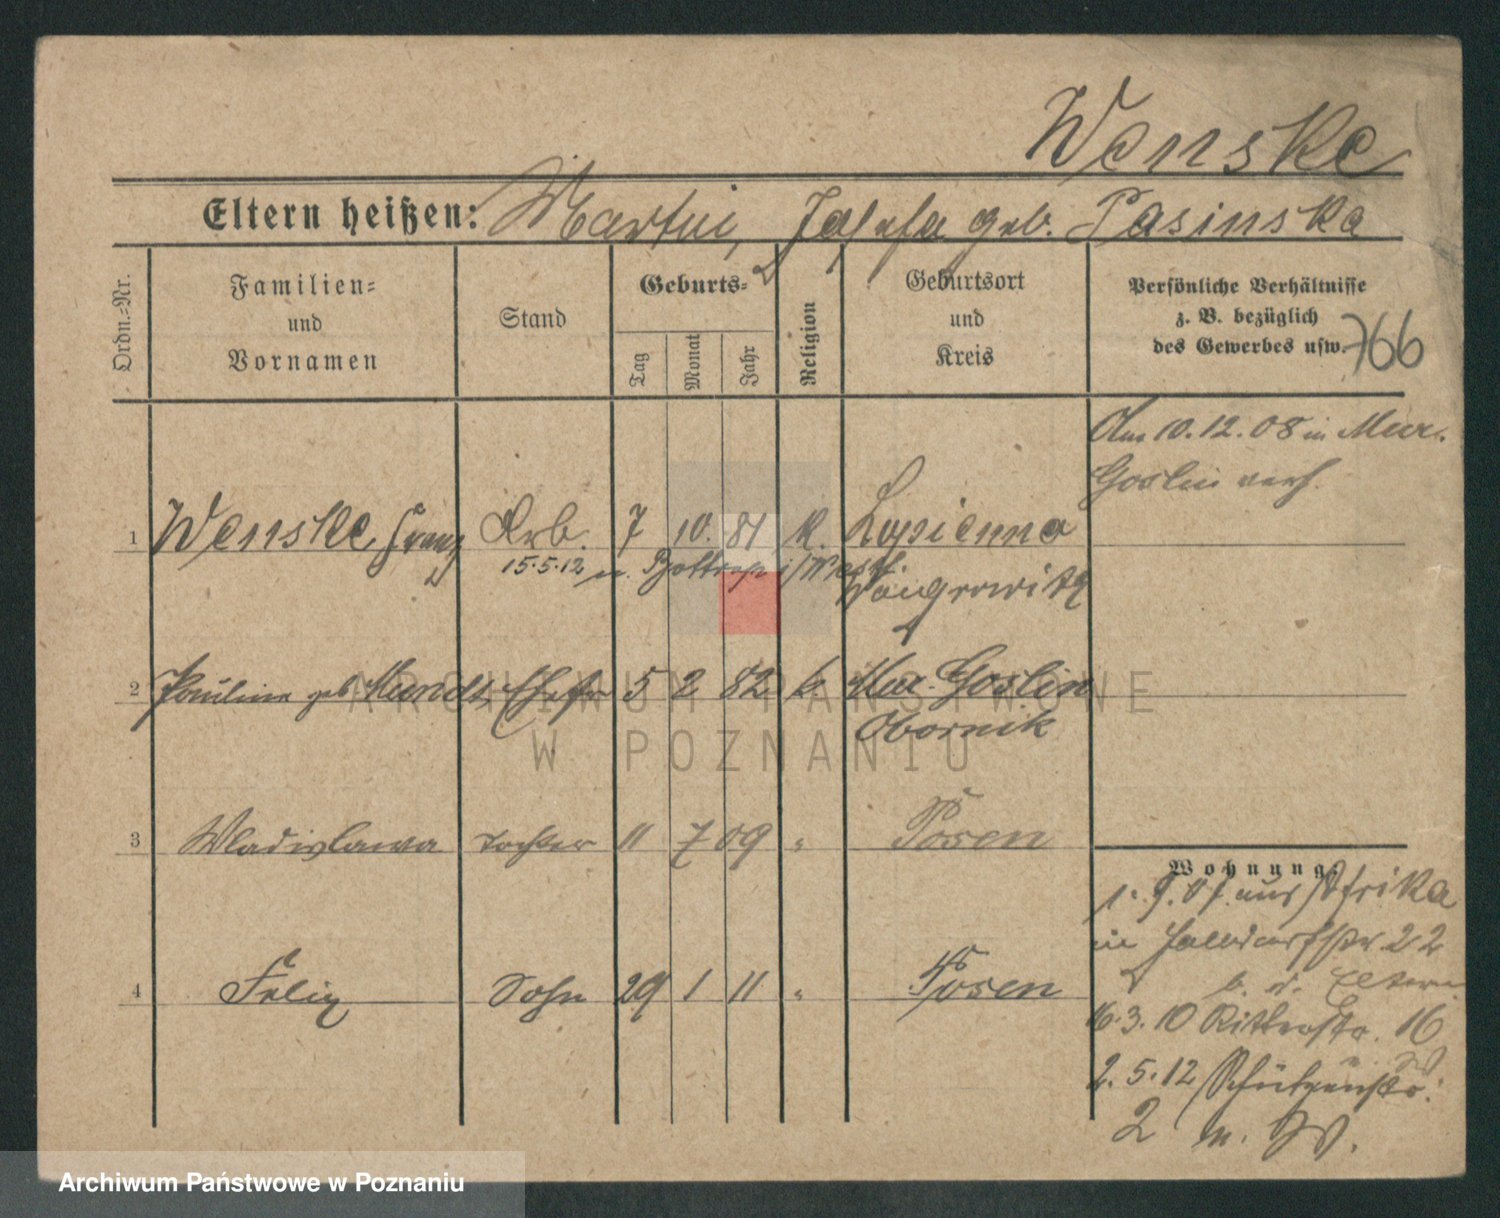 Wenske
Eltern heißen: Martin, Josefa geb. Pasinska
Ordn.-Nr.
Familien-
und
Vornamen
Stand
Geburts-
Tag
Monat
Jahr
Religion
Geburtsort
und
Kreis
Persönliche Verhältnisse
z. B. bezüglich
des Gewerbes usw.
766
Am 10.12.08 in Mur.
Goslin verh.
1 Wenske, Franz Arb. 7 10. 81 k. Lopienno
15.5.12 n. Bottrop i/Westf.
Wongrowitz
2 Pauline geb. Mundt, Ehefr 5 2 82 k. Mur. Goslin
Obornik
3 Wladislawa Tochter 11 7 09 " Posen
4 Felix Sohn 29 1 11 " Posen
Wohnung.
aus Afrika
in 22
b. d. Eltern
16.3.10 Ritterstr. 16
2.5.12 Schützenstr.
2 n. W.
ARCHIWUM PAŃSTWOWE
W POZNANIU
Archiwum Państwowe w Poznaniu